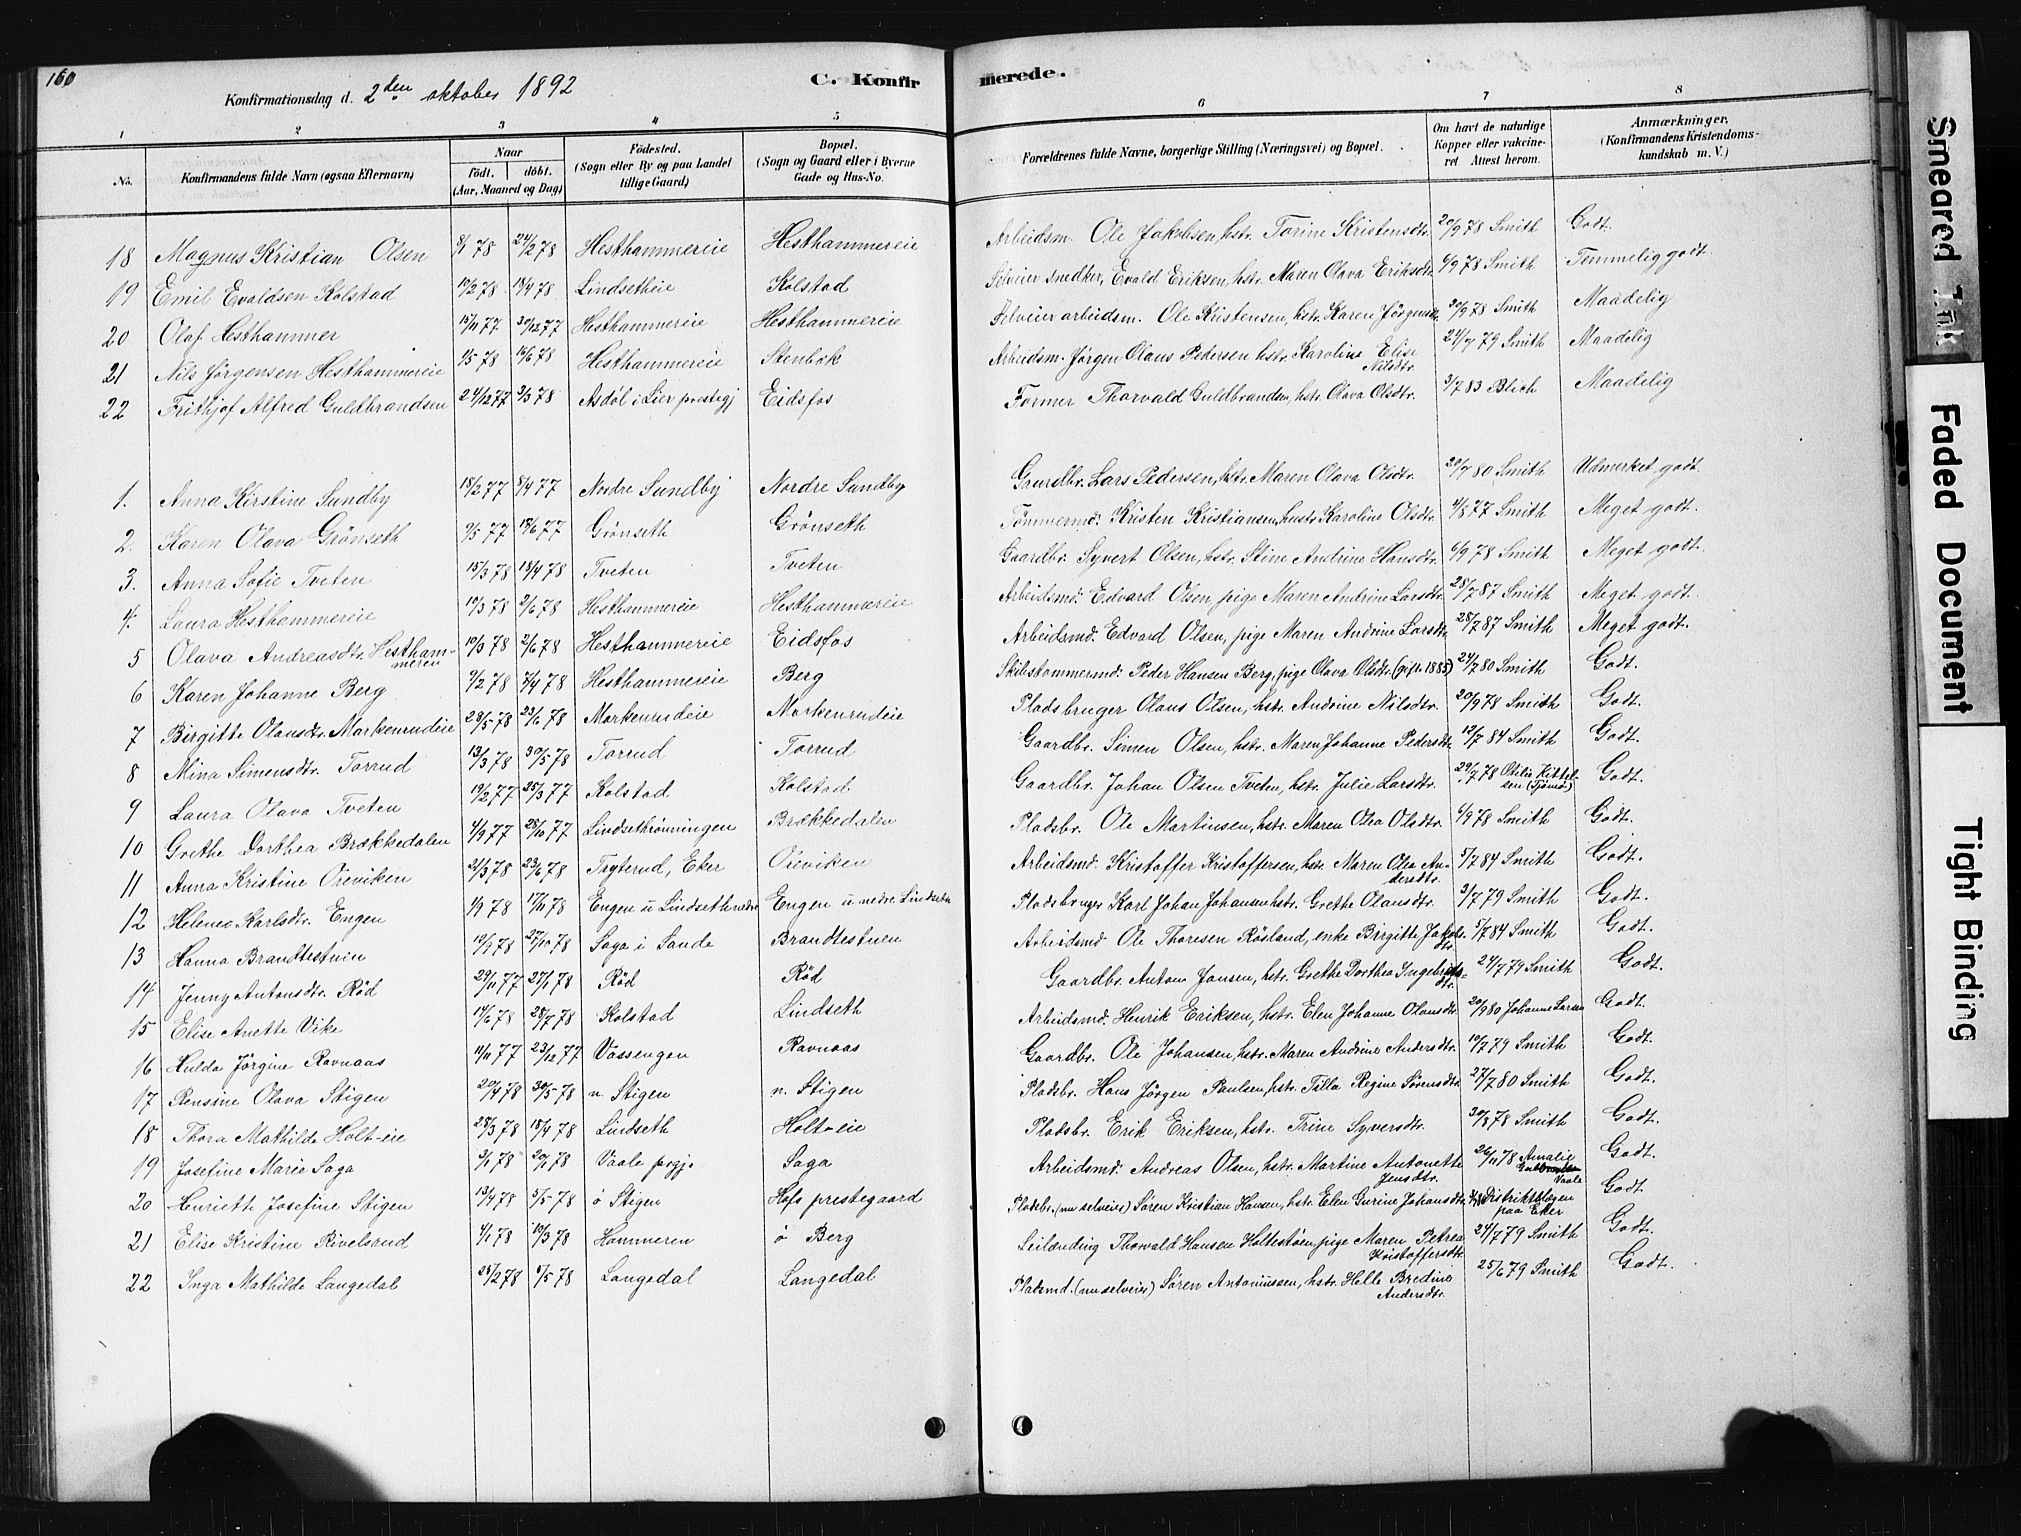 160
Konfirmationsdag d. 2den oktober 1892
C. Konfirmerede.
1 2 3 4 5 6 7 8
No. Konfirmandens fulde Navn (ogsaa Efternavn) Naar födt. döbt. (Aar, Maaned og Dag) Födested. (Sogn eller By og paa Landet tillige Gaard) Bopæl. (Sogn og Gaard eller i Byerne Gade og Hus-No. Forældrenes fulde Navne, borgerlige Stilling (Næringsvei) og Bopæl. Om havt de naturlige Kopper eller vakcineret Attest herom. Anmærkninger. (Konfirmandens Kristendomskundskab m. V.)
18 Magnus Kristian Olsen 8/1 78 24/2 78 Hesthammereie Hesthammereie Arbeidsm. Ole Jakobsen, hstr. Torine Kristensdtr. 20/9 78 Smith Godt.
19 Emil Evaldsen Kolstad 19/2 78 Lindsetheie Kolstad Selveier snedker, Evald Eriksen, hstr. Maren Olava Eriksdtr. 6/9 78 Smith Temmelig godt.
20 Olaf Hesthammer 15/11 77 30/12 77 Hesthammereie Hesthammereie Selveier arbeidsm. Ole Kristensen, hstr. Karen Jörgensdtr. 20/9 78 Smith Maadelig
21 Nils Jörgensen Hesthammereie 1/5 78 16/6 78 Hesthammereie Stenbok Arbeidsm. Jörgen Olaus Pedersen hstr. Karoline Elise Nilsdtr. 24/7 79 Smith Maadelig
22 Frithjof Alfred Guldbrandsen 24/12 77 3/3 78 Asdöl i Lier prestegj Eidsfos Former Thorvald Guldbrandsen, hstr. Olava Olsdtr. 3/7 83 Blich Maadelig
1. Anna Kirstine Sundby 18/2 77 8/4 77 Nordre Sundby Nordre Sundby Gaardbr. Lars Pedersen, hstr. Maren Olava Olsdtr. 20/7 80 Smith Udmerket godt
2. Karen Olava Grönseth 9/5 77 Grönseth Grönseth Tömmermd. Kristen Kristiansen, hustr. Karoline Olsdtr. 4/8 77 Smith Meget godt.
3. Anna Sofie Tveten 15/3 78 18/4 78 Tveten Tveten Gaardbr. Syvert Olsen, hstr. Stine Andrine Hansdtr. 6/9 78 Smith Meget godt.
4. Laura Hesthammereie 19/3 78 2/6 78 Hesthammereie Hesthammereie Arbeidsmd. Edvard Olsen, pige Maren Andrine Larsdtr. 28/7 87 Smith Meget godt.
5 Olava Andreasdtr. Hesthammereie 19/3 78 2/6 78 Hesthammereie Eidsfos Arbeidsmd. Edvard Olsen, pige Maren Andrine Larsdtr. 28/7 87 Smith Meget godt.
6 Karen Johanne Berg 9/2 78 7/4 78 Hesthammereie Berg Skibstømmermd. Peder Hansen Berg, pige Olava Olsdtr. (gift 1885) 24/7 80 Smith Godt.
7 Birgitte Olausdtr. Markenrudeie 28/5 78 23/6 78 Markenrudeie Markenrudeie Pladsbruger Olaus Olsen, hstr. Andrine Nilsdtr. 20/9 78 Smith Godt.
8 Mina Simensdtr. Torrud 13/3 78 30/5 78 Torrud Torrud Gaardbr. Simen Olsen, hstr. Maren Johanne Pedersdtr. 12/7 84 Smith Godt.
9 Laura Olava Tveten 19/2 77 25/3 77 Kolstad Kolstad Gaardbr. Johan Olsen Tveten, hstr. Julie Larsdtr. 29/7 78 Otilie Kittelsen (Tjömö) Godt.
10 Grethe Dorthea Brækkedalen 4/9 77 28/10 77 Lindsethrönningen Brækkedalen Pladsbr. Ole Martinsen, hstr. Maren Olea Olsdtr. 6/9 78 Smith Godt.
11 Anna Kristine Oreviken 21/3 78 23/6 78 Teglerud, Eker Oreviken Arbeidsmd. Kristoffer Kristoffersen, hstr. Maren Olea Andersdtr. 5/7 84 Smith Godt.
12 Helene Karlsdtr. Engen 1/9 78 17/11 78 Engen u Lindseth nedre Engen u nedre Lindseth Pladsbruger Karl Johan Johansen hstr. Grethe Olausdtr. 3/7 79 Smith Godt.
13 Hanna Brandtestuen 19/9 78 27/10 78 Saga i Sande Brandtestuen Arbeidsmd Ole Thoresen Rösland, enke Birgitte Jakobsdtr. 5/7 84 Smith Godt.
14 Jenny Antonsdtr. Röd 29/11 77 27/1 78 Röd Röd Gaardbr. Anton Jansen, hstr. Grethe Dorthea Ingebrigtsdtr. 24/7 79 Smith Godt.
15 Elise Anette Vike 14/6 78 28/7 78 Kolstad Lindseth Arbeidsmd. Henrik Eriksen, hstr. Elen Johanne Olausdtr. 20/9 80 Johanne Larsen Godt.
16 Hulda Jörgine Ravnaas 11/11 77 23/12 77 Vassengen Ravnaas Gaardbr. Ole Johansen, hstr. Maren Andrine Andersdtr. 19/7 79 Smith Godt.
17 Rensine Olava Stigen 20/4 78 30/5 78 n. Stigen n. Stigen Pladsbr. Hans Jörgen Paulsen, hstr. Tilla Regine Sörensdtr. 27/7 80 Smith Godt.
18 Thora Mathilde Holt-eie 28/3 78 18/4 78 Lindseth Holt-eie Pladsbr. Erik Eriksen, hstr. Trine Syversdtr. 30/8 78 Smith Godt.
19 Josefine Marie Saga 3/1 78 20/1 78 Vaale prgj. Saga Arbeidsmd. Andreas Olsen, hstr. Martine Antonette Jensdtr. 26/11 78 Amalie Vaale Godt.
20 Henriette Josefine Stigen 13/4 78 5/5 78 ö Stigen Hofs prestegaard Pladsbr. (nu selveier) Sören Kristian Hansen, hstr. Elen Gurine Johansdtr. Distriktslægen paa Eker Godt.
21 Elise Kristine Rivelsrud 4/1 78 10/3 78 Hammeren ö Berg Leilænding Thorvald Hansen Holtestöen, pige Maren Petrea Kristoffersdtr. 24/7 79 Smith Godt.
22 Inga Mathilde Langedal 25/2 78 5/5 78 Langedal Langedal Pladsmd. (nu selveier) Sören Antoniussen, hstr. Helle Bredine Andersdtr. 25/6 79 Smith Godt.
Smeared Ink
Faded Document
Tight Binding